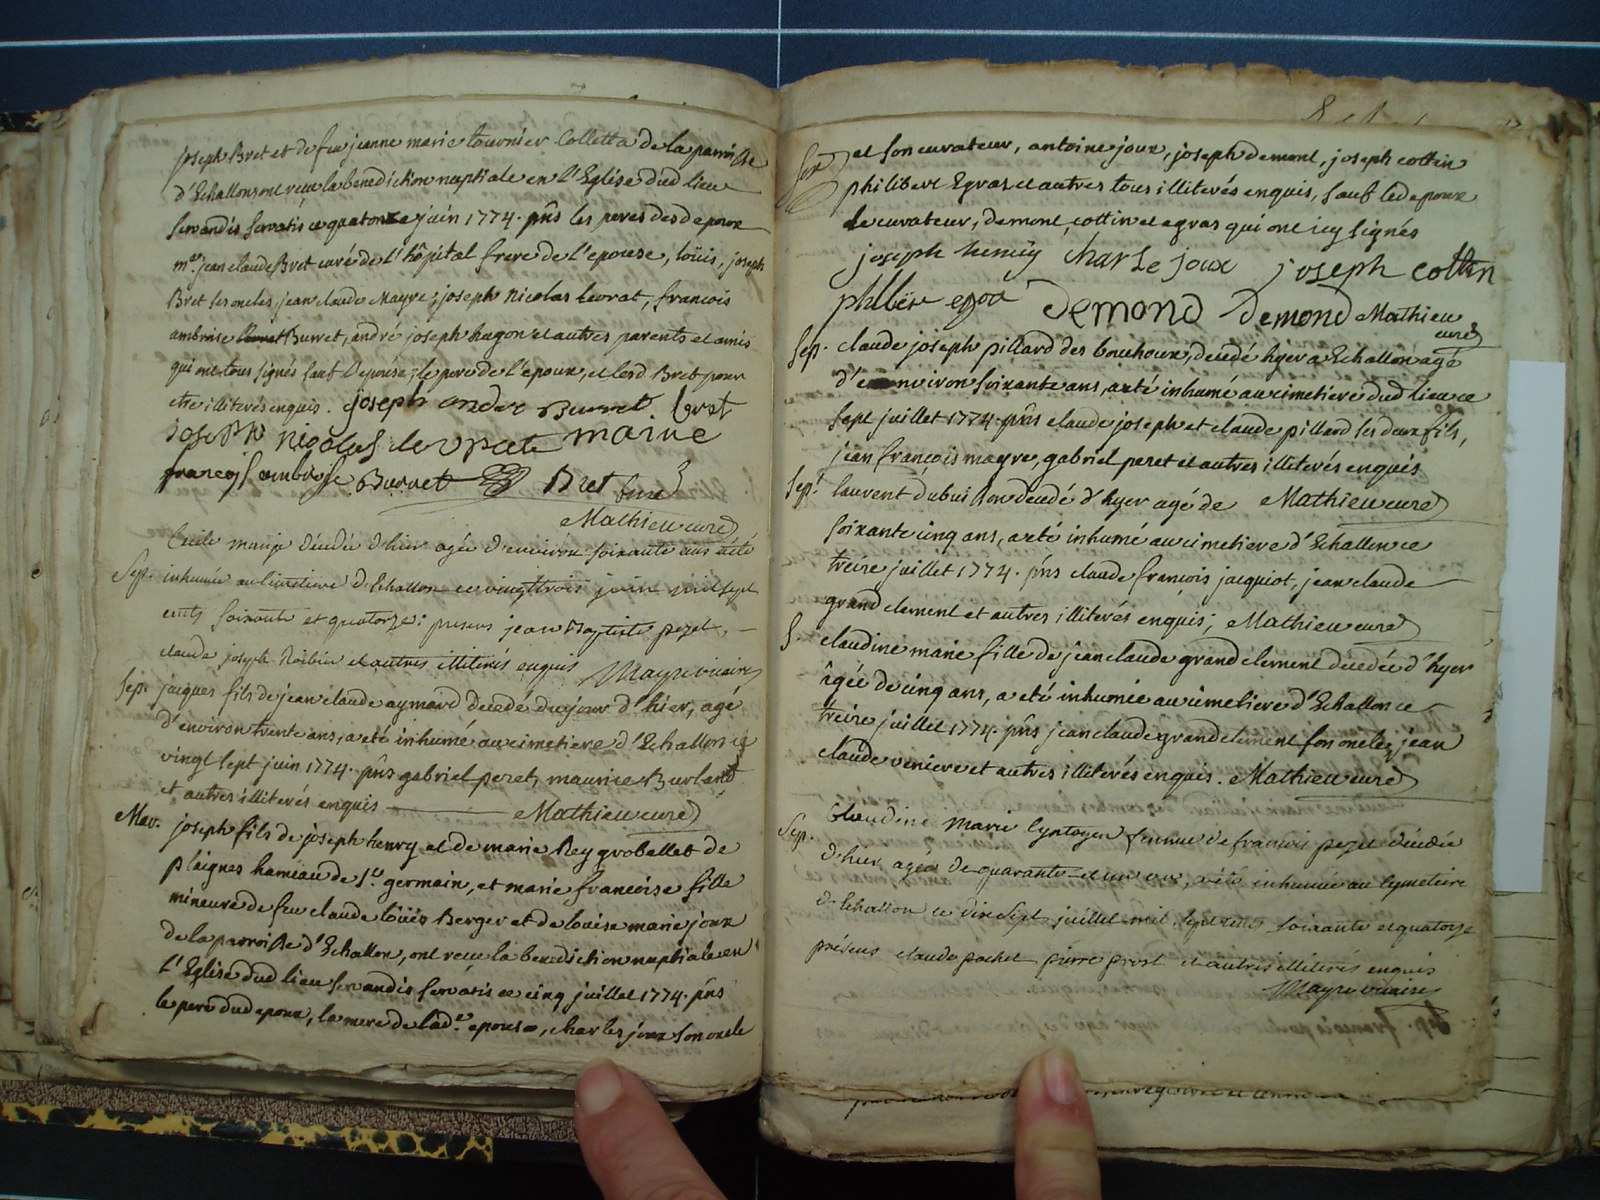 joseph Bret et de feu jeanne marie tournier Colletta de la parroisse
d'Echallon ont recue la benediction nuptiale en l'Eglise dud lieu
servandis servatis ce quatorze juin 1774. pñs les peres desd epoux
mre. jean claude Bret curé de l'hôpital frere de l'epouse, loüis, joseph
Bret ses oncles, jean claude Mayre, joseph Nicolas Levrat, francois
ambroise Burret, andré joseph hugon et autres parents et amis
qui ont tous signés sauf l'epouse, le pere de l'epoux, et lesd Bret pour
etre illiterés enquis. joseph Burret. bret
joseph nicolas levrat maire
francois ambroise Burret Bret curé
Mathieu curé
Cecile décédée d'hier agée d'environ soixante ans a été
Sep. inhumée au cimetiere d'Echallon ce vingttrois juin mil sept
cents soixante et quatorze: presens jean Baptiste pezet,
claude joseph et autres illiterés enquis Mayre vicaire
Sep. jacques fils de jean claude aymard decedé du jour d'hier, agé
d'environ trente ans, a eté inhumé au cimetiere d'Echallon ce
vingt sept juin 1774. pñs gabriel peret, maurice Burland
et autres illiterés enquis Mathieu curé
Mar. joseph fils de joseph henry et de marie Rey grobellet de
plaignes hamiau de St. germain, et marie francoise fille
mineure de feu claude loüis Berger et de louise marie joux
de la parroisse d'Echallon, ont recue la benediction nuptiale en
l'Eglise dud lieu servandis servatis ce cinq juillet 1774. pñs
le pere dud epoux, la mere de lade. epouse, charles joux son oncle
et son curateur, antoine joux, joseph demont, joseph cottin
philibert Egras et autres tous illiterés enquis, sauf led epoux
le curateur, demont, cottin et egras qui ont icy signés
joseph henry charle joux joseph cottin
demond demond Mathieu
curé
Sep. claude joseph pillard des bouchoux, decedé hyer a Echallon agé
d'environ soixante ans, a eté inhumé au cimetiere dud lieu ce
sept juillet 1774. pñs claude joseph et claude pillard ses deux fils,
jean francois mayre, gabriel peret et autres illiterés enquis
Sep. laurent dubuisson decedé d'hyer agé de Mathieu curé
soixante cinq ans, a eté inhumé au cimetiere d'Echallon ce
treize juillet 1774. pñs claude françois jacquiot, jean claude
grand clement et autres illiterés enquis, Mathieu curé
S. claudine marie fille de jean claude grand clement decedée d'hyer
âgée de cinq ans, a eté inhumée au cimetiere d'Echallon ce
treize juillet 1774. pñs jean claude grand clement son oncle, jean
claude veniere et autres illiterés enquis. Mathieu curé
Sep. Claudine Marie femme de francois pezet décédée
d'hier agée de quarante et un ans, a été inhumée au cymetiere
d'Echallon ce dix sept juillet mil sept cents soixante et quatorze
présens claude pochet pierre prost et autres illiteres enquis
Mayre vicaire